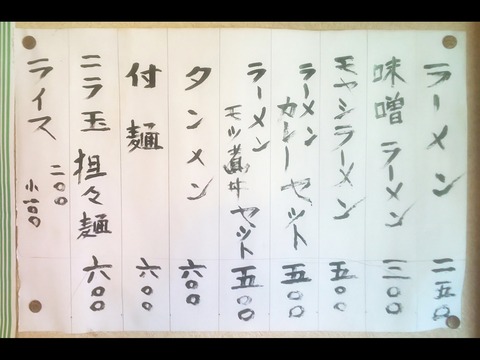 ラーメン 二五〇
味噌ラーメン 三〇〇
モヤシラーメン 五〇〇
ラーメンカレーセット 五〇〇
ラーメンモツ煮丼セット 五〇〇
タンメン 六〇〇
付麺 六〇〇
ニラ玉担々麺 六〇〇
ライス 二〇〇
小一〇〇